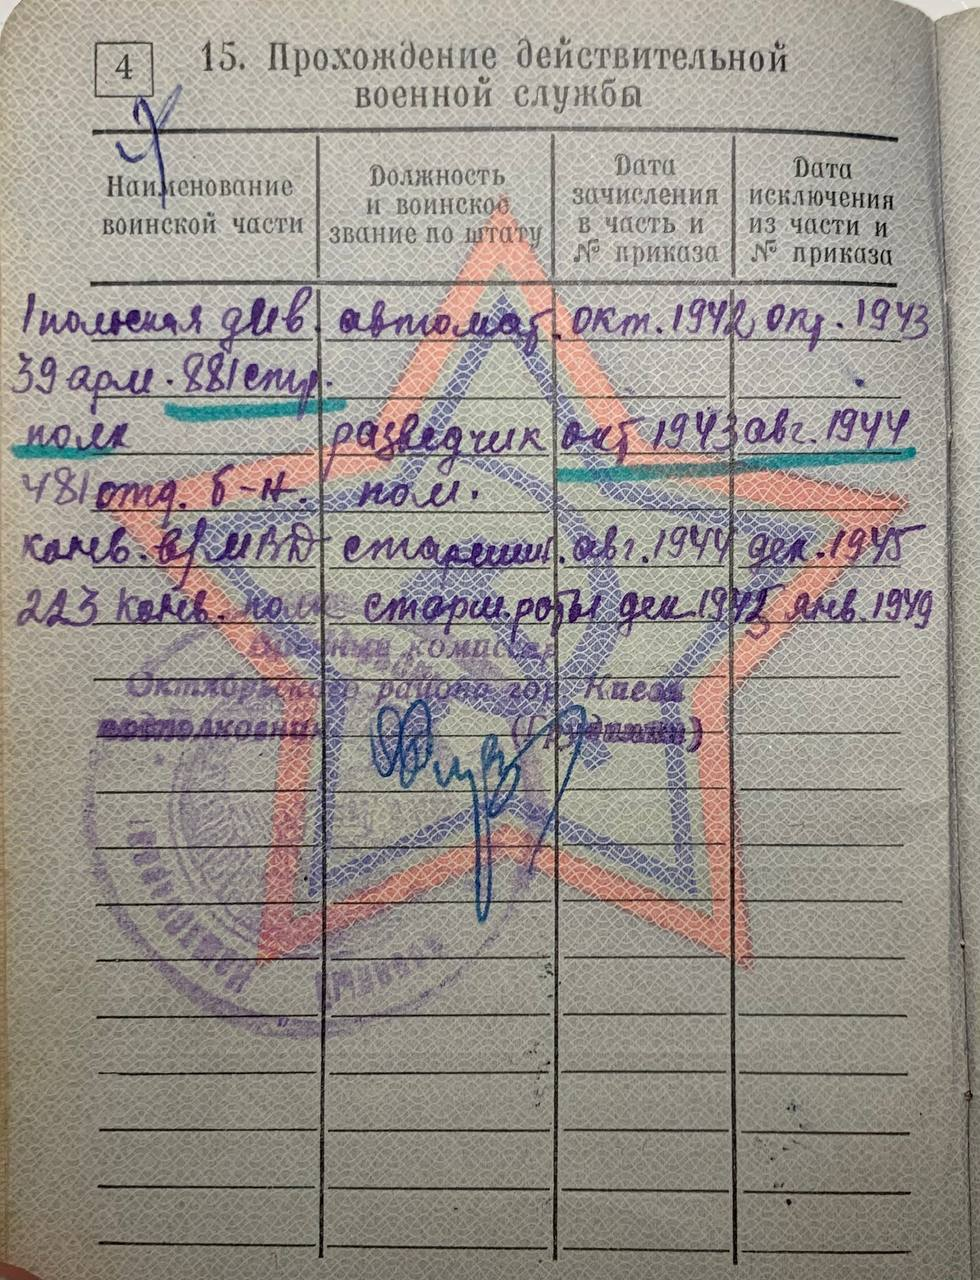 4
15. Прохождение действительной
военной службы
Наименование
воинской части
Должность
и воинское
звание по штату
Дата
зачисления
в часть и
№ приказа
Дата
исключения
из части и
№ приказа
1 польская див. автомат. окт. 1942 окт. 1943
39 арм. 881 стр.
полк разведчик окт 1943 авг. 1944
481 отд. б-н. пом.
конв. в/ МВД старшин. авг. 1944 дек. 1945
223 конв. полк старш. роты дек. 1945 янв. 1949
Военный комиссар
Октябрьского района гор. Киева